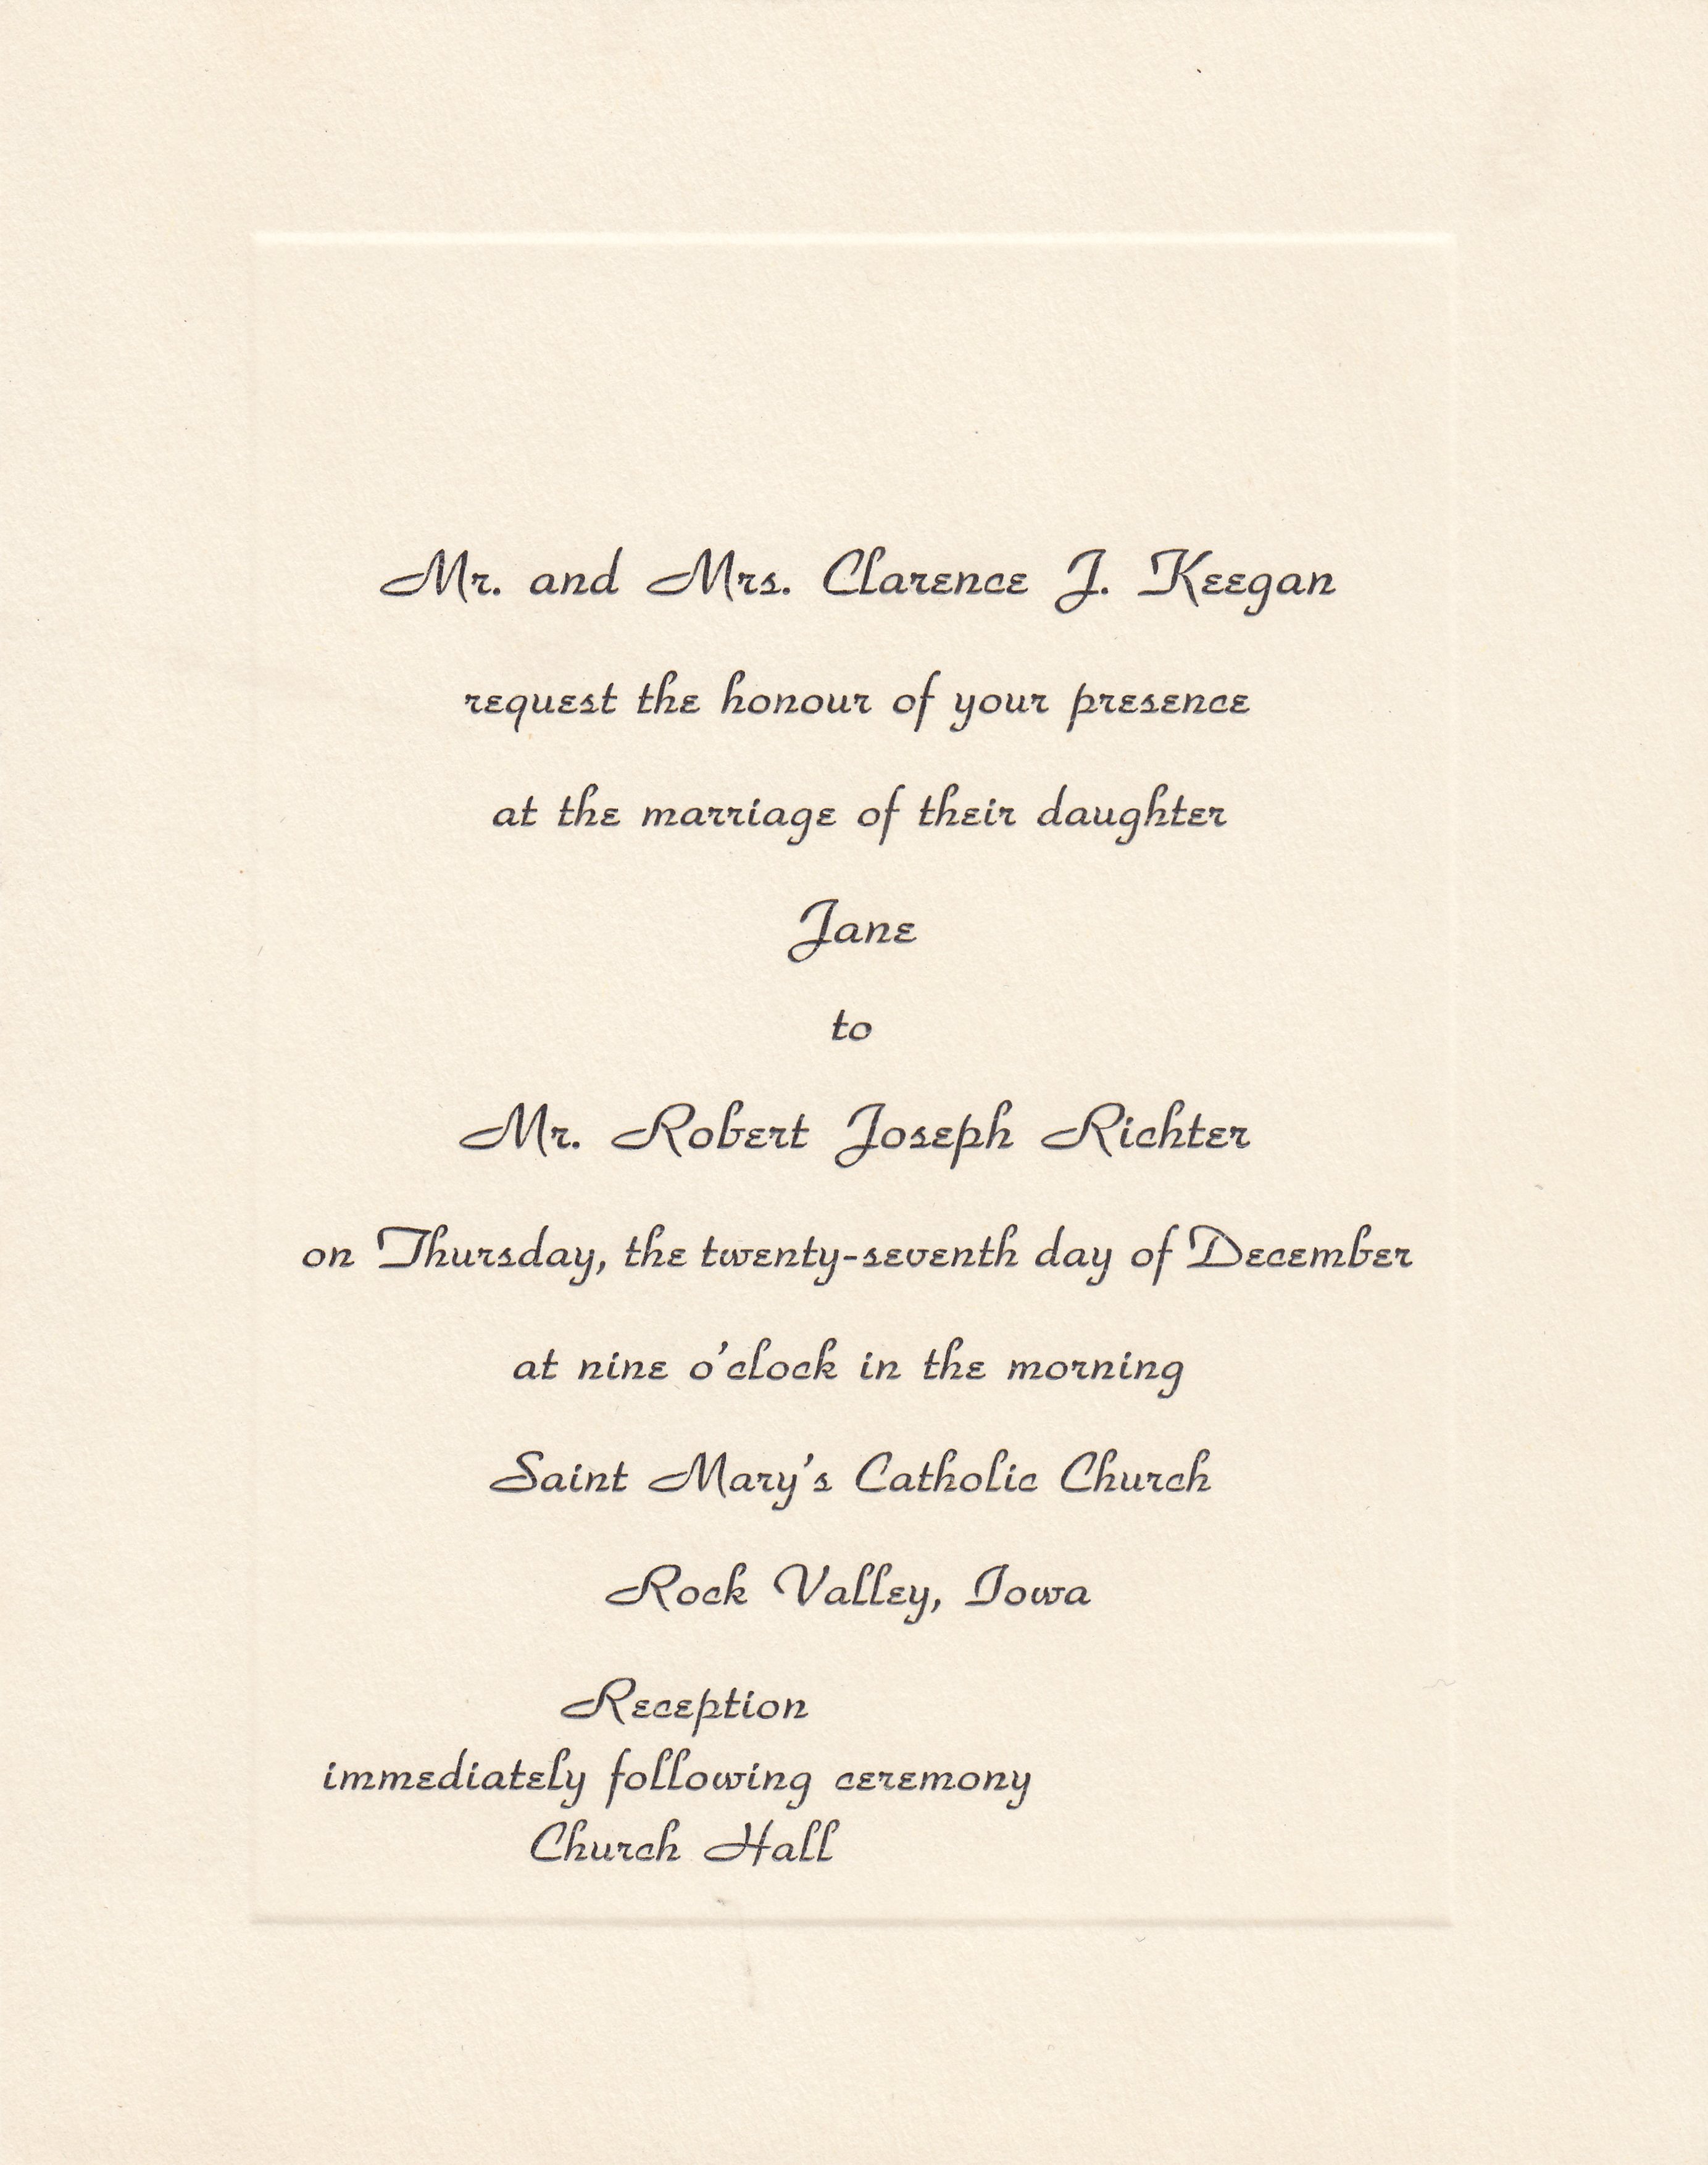 Mr. and Mrs. Clarence J. Keegan
request the honour of your presence
at the marriage of their daughter
Jane
to
Mr. Robert Joseph Richter
on Thursday, the twenty-seventh day of December
at nine o'clock in the morning
Saint Mary's Catholic Church
Rock Valley, Iowa
Reception
immediately following ceremony
Church Hall